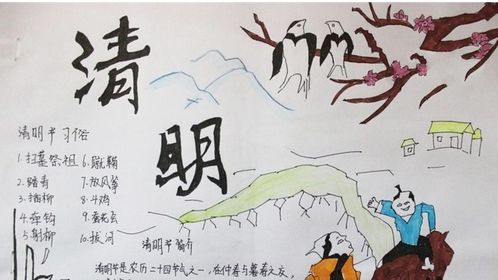 清明
清明节习俗
1.扫墓祭祖 6.蹴鞠
2.踏青 7.放风筝
3.插柳 8.斗鸡
4.牵钩 9.蚕花会
5.射柳 10.拔河
清明节简介
清明节是农历二十四节气之一，在仲春与暮春之交，